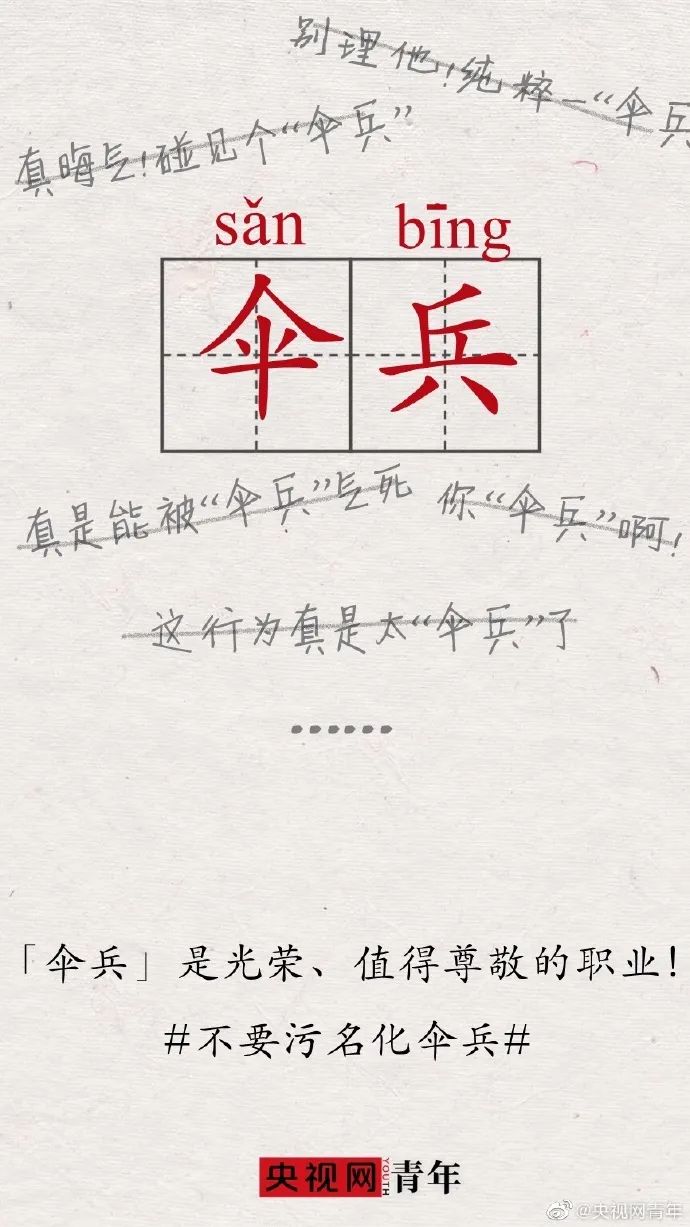 别理他!纯粹一“伞兵
真晦气!碰见个“伞兵”
sǎn bīng
伞兵
真是能被“伞兵”气死 你“伞兵”啊!
这行为真是太“伞兵”了
……
「伞兵」是光荣、值得尊敬的职业!
#不要污名化伞兵#
央视网YOUTH青年
@央视网青年